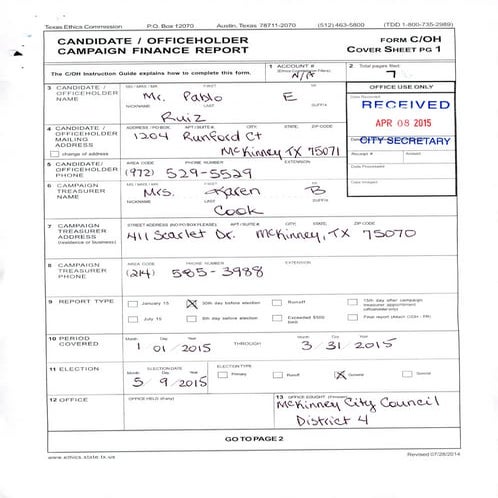 Texas Ethics Commission P.O. Box 12070 Austin, Texas 78711-2070 (512) 463-5800 (TDD 1-800-735-2989)
CANDIDATE / OFFICEHOLDER
CAMPAIGN FINANCE REPORT
FORM C/OH
COVER SHEET PG 1
The C/OH Instruction Guide explains how to complete this form.
1 ACCOUNT #
(Ethics Commission Filers)
N/A
2 Total pages filed:
7
3 CANDIDATE /
OFFICEHOLDER
NAME
MS / MRS / MR FIRST MI
Mr. Pablo E
NICKNAME LAST SUFFIX
Ruiz
OFFICE USE ONLY
Date Received
RECEIVED
APR 08 2015
CITY SECRETARY
Receipt # Amount
Date Processed
Date Imaged
4 CANDIDATE /
OFFICEHOLDER
MAILING
ADDRESS
change of address
ADDRESS / PO BOX; APT / SUITE #; CITY; STATE; ZIP CODE
1204 Runford Ct
McKinney, TX 75071
5 CANDIDATE/
OFFICEHOLDER
PHONE
AREA CODE PHONE NUMBER EXTENSION
(972) 529-5529
6 CAMPAIGN
TREASURER
NAME
MS / MRS / MR FIRST MI
Mrs. Karen B
NICKNAME LAST SUFFIX
Cook
7 CAMPAIGN
TREASURER
ADDRESS
(residence or business)
STREET ADDRESS (NO PO BOX PLEASE); APT / SUITE #; CITY; STATE; ZIP CODE
411 Scarlet Dr. McKinney, TX 75070
8 CAMPAIGN
TREASURER
PHONE
AREA CODE PHONE NUMBER EXTENSION
(214) 585-3988
9 REPORT TYPE
January 15
30th day before election
Runoff
15th day after campaign
treasurer appointment
(officeholder only)
July 15
8th day before election
Exceeded $500
limit
Final report (Attach C/OH - FR)
10 PERIOD
COVERED
Month Day Year
1 / 01 / 2015
THROUGH
Month Day Year
3 / 31 / 2015
11 ELECTION
ELECTION DATE
Month Day Year
5 / 9 / 2015
ELECTION TYPE
Primary
Runoff
General
Special
12 OFFICE
OFFICE HELD (if any)
13 OFFICE SOUGHT (if known)
McKinney City Council
District 4
GO TO PAGE 2
www.ethics.state.tx.us Revised 07/28/2014